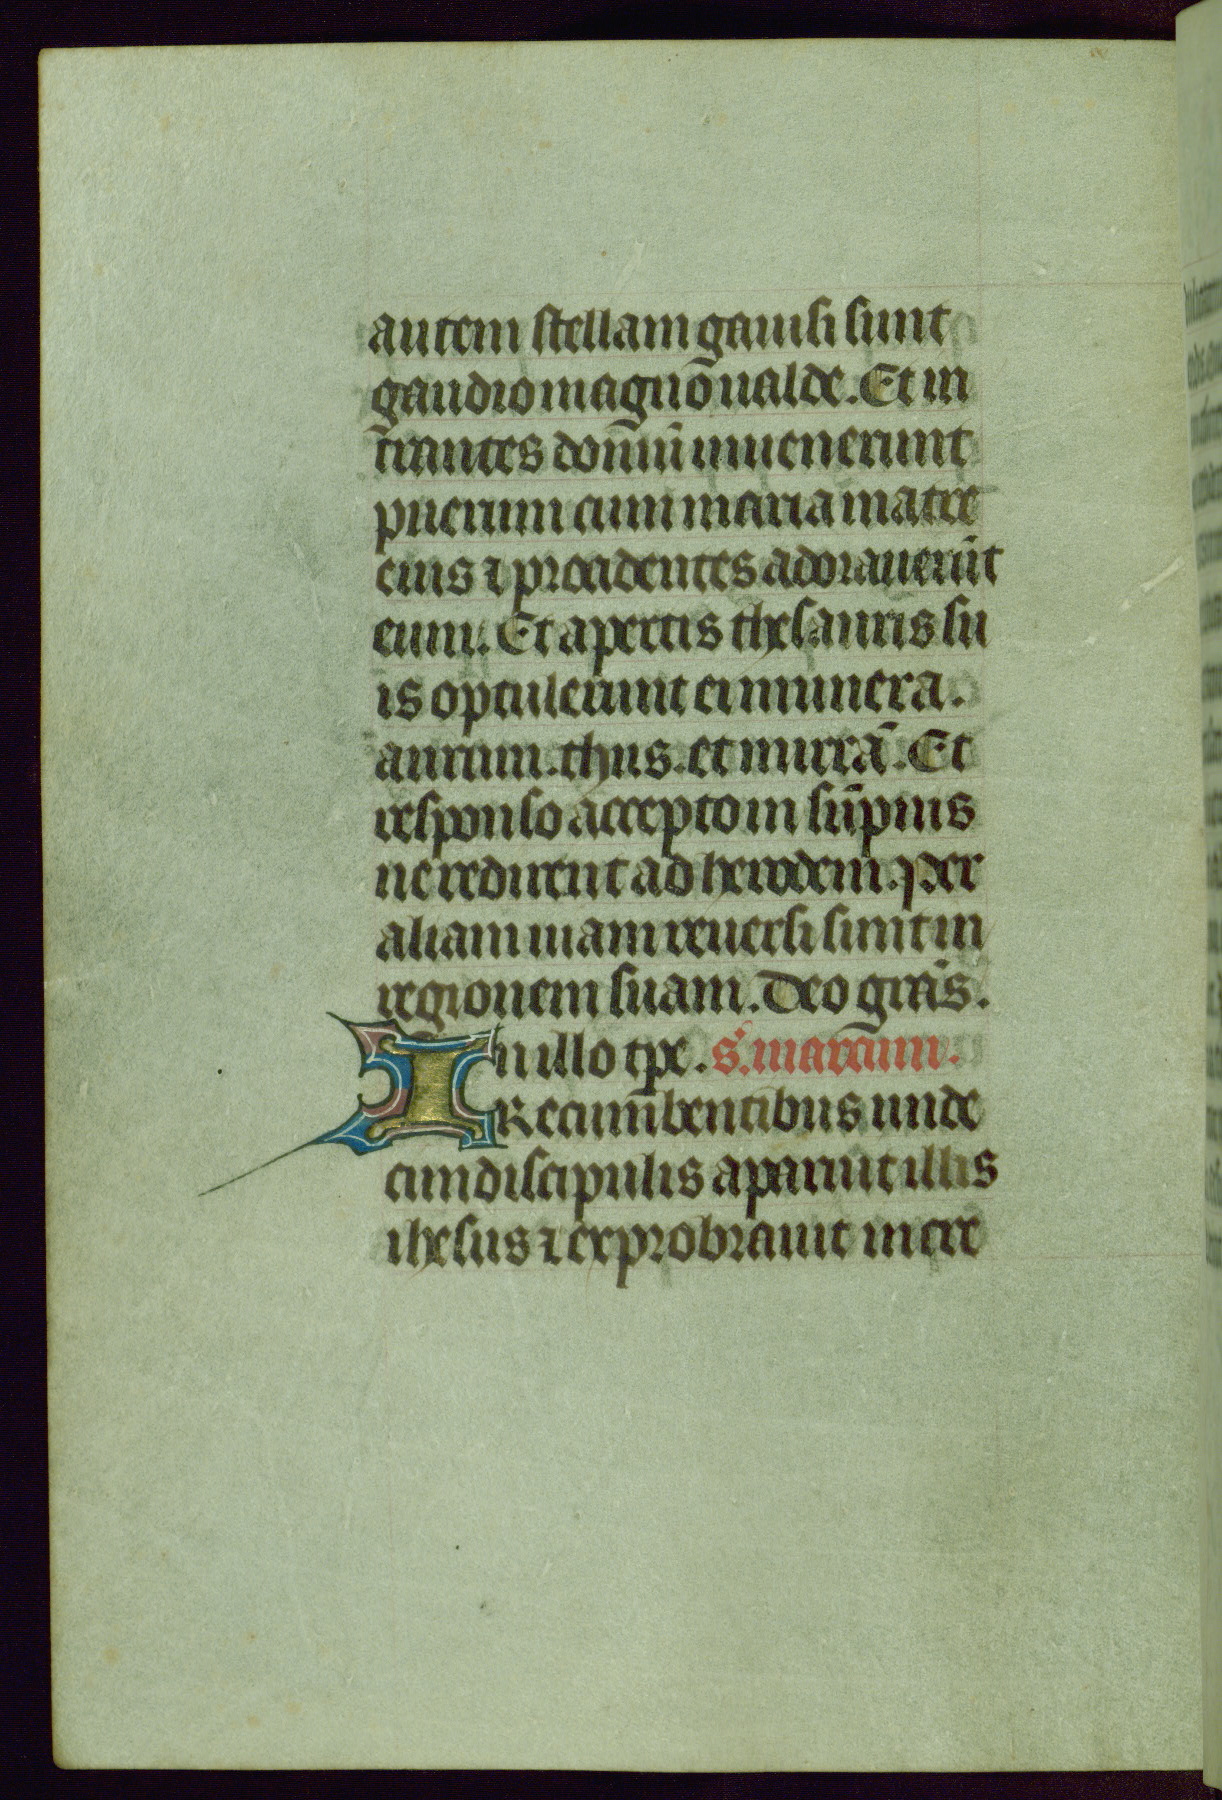 autem stellam gauisi sunt
gaudio magno ualde. Et in
trantes domū inuenerunt
puerum cum maria matre
eius ⁊ procidentes adorauerūt
eum. Et apertis thesauris su
is optulerunt ei munera.
aurum. thus. et mirrā. Et
responso accepto in sūpnis
ne redirent ad herodem. per
aliam uiam reuersi sunt in
regionem suam. Deo grās.
In illo tpe. s. marcum.
Recumbentibus unde
cim discipulis aparuit illis
ihesus ⁊ exprobrauit incre